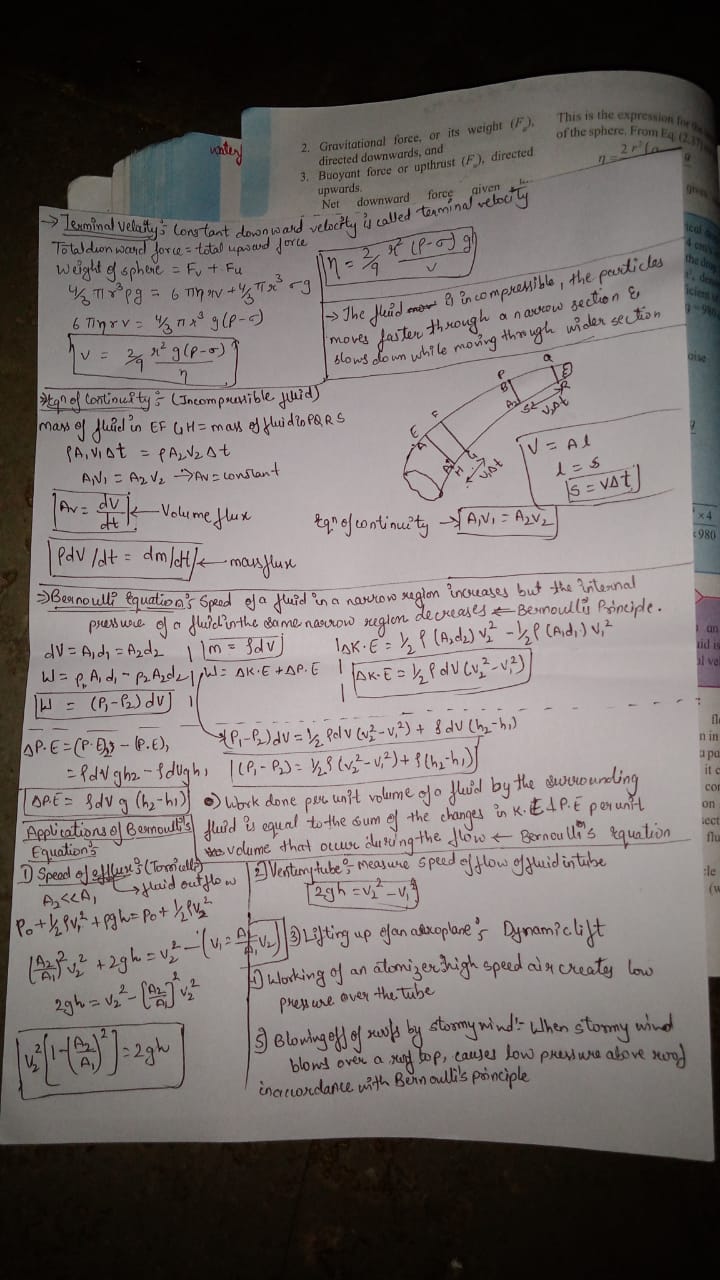 water
2. Gravitational force, or its weight (F
directed downwards, and
3. Buoyant force or upthrust (F
), directed
upwards.
Net downward force given
This is the expression for the
of the sphere. From Eq. (2.37)
→ Terminal velocity: Constant downward velocity is called terminal velocity
Total downward force = total upward force
Weight of sphere = Fv + Fu
4/3 πr³ρg = 6πηrv + 4/3 πr³σg
6πηrv = 4/3 πr³g(ρ-σ)
v = 2/9 r²g(ρ-σ)/η
η = 2/9 r²(ρ-σ)g/v
→ The fluid is incompressible, the particles
moves faster through a narrow section &
slows down while moving through wider section
⇒ Eqn of Continuity :- (Incompressible fluid)
mass of fluid in EFGH = mass of fluid in PQRS
ρA₁V₁Δt = ρA₂V₂Δt
A₁V₁ = A₂V₂ → Av = constant
Av = dV/dt ← Volume flux
ρdV/dt = dm/dt ← mass flux
Eqn of continuity → A₁V₁ = A₂V₂
V = Al
l = s
s = vΔt
⇒ Bernoulli Equation: Speed of a fluid in a narrow region increases but the internal
pressure of a fluid in the same narrow region decreases ← Bernoulli's Principle.
dV = A₁d₁ = A₂d₂
m = ρdv
W = P₁A₁d₁ - P₂A₂d₂
W = ΔK.E + ΔP.E
W = (P₁-P₂)dv
ΔK.E = ½ρ(A₂d₂)v₂² - ½ρ(A₁d₁)v₁²
ΔK.E = ½ρdV(v₂²-v₁²)
ΔP.E = (P.E)₂ - (P.E)₁
= ρdVgh₂ - ρdVgh₁
ΔP.E = ρdVg(h₂-h₁)
(P₁-P₂)dv = ½ρdv(v₂²-v₁²) + ρdv(h₂-h₁)
(P₁-P₂) = ½ρ(v₂²-v₁²) + ρ(h₂-h₁)
Work done per unit volume of a fluid by the surrounding
fluid is equal to the sum of the changes in K.E & P.E per unit
volume that occur during the flow ← Bernoulli's Equation
Applications of Bernoulli's
Equation:
1) Speed of efflux: (Torricelli)
A₂<<A₁ → fluid outflow
P₀ + ½ρv₁² + ρgh = P₀ + ½ρv₂²
(A₂/A₁)² v₂² + 2gh = v₂² - (v₁ = A₂/A₁ v₂)
2gh = v₂² - [A₂/A₁]² v₂²
v₂²[1-(A₂/A₁)²] = 2gh
2) Ventury tube: measure speed of flow of fluid in tube
2gh = v₂² - v₁²
3) Lifting up of an aeroplane: Dynamic lift
4) Working of an atomizer: high speed air creates low
pressure over the tube
5) Blowing off of roofs by stormy wind:- When stormy wind
blows over a roof top, causes low pressure above roof
in accordance with Bernoulli's principle